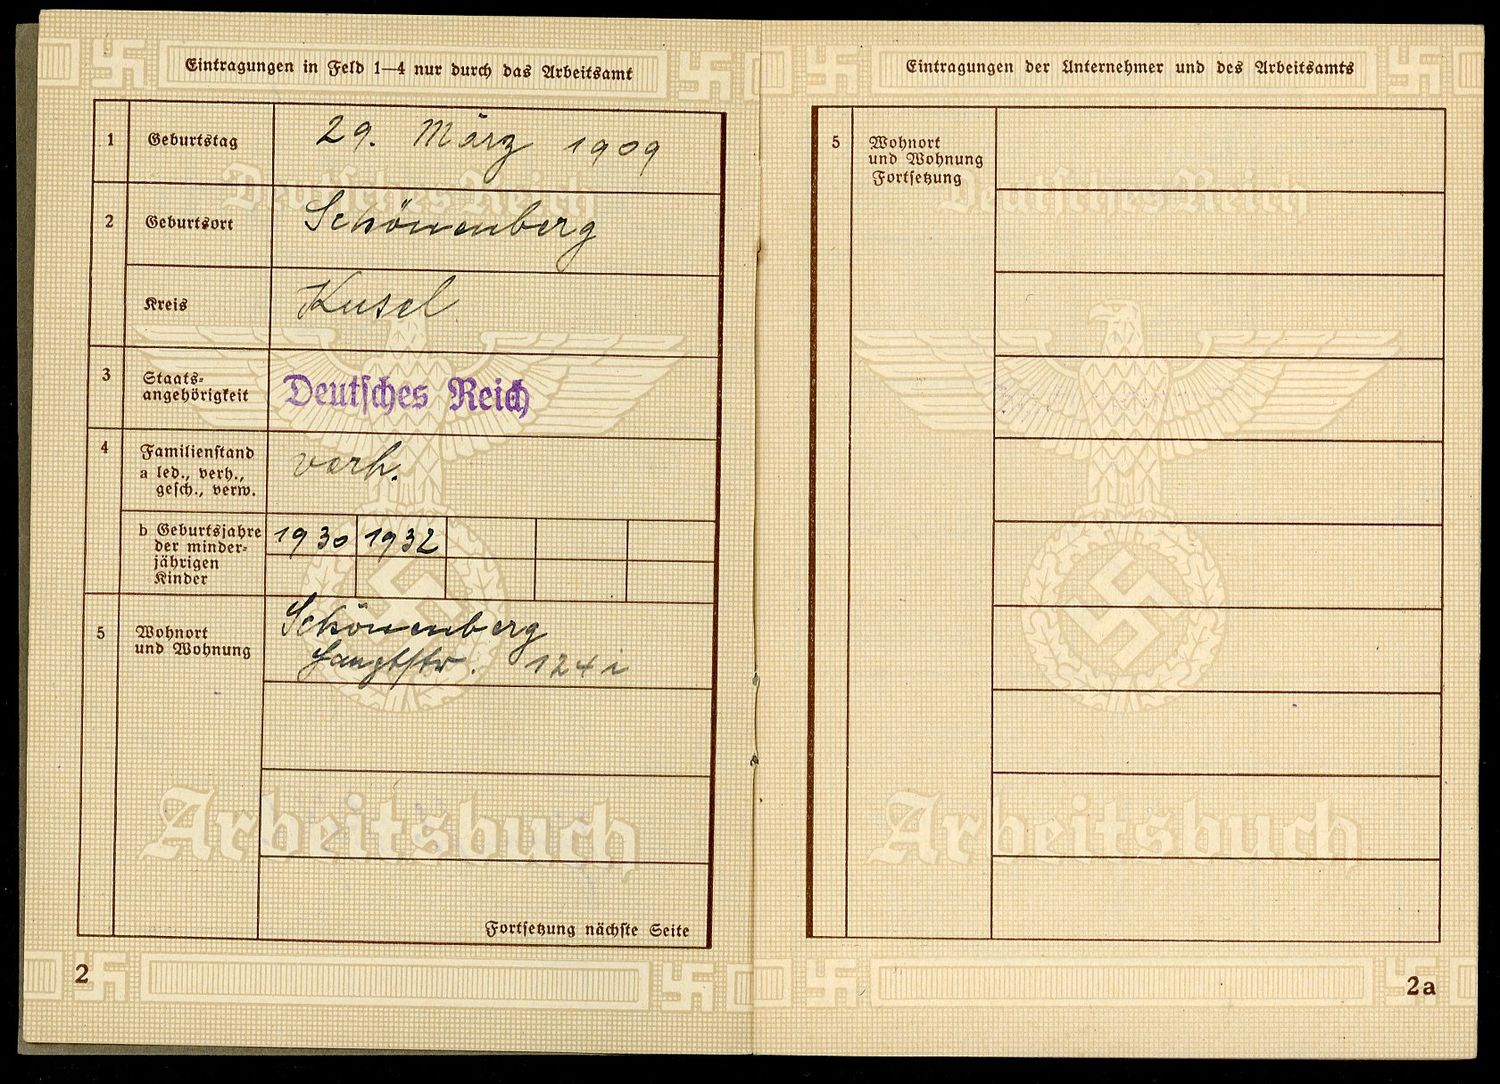 Eintragungen in Feld 1—4 nur durch das Arbeitsamt
1 Geburtstag 29. März 1909
2 Geburtsort Schönenberg
Kreis Kusel
3 Staats-
angehörigkeit Deutsches Reich
4 Familienstand verh.
a led., verh.,
gesch., verw.
b Geburtsjahre 1930 1932
der minder-
jährigen
Kinder
5 Wohnort Schönenberg
und Wohnung Hauptstr. 124 i
Fortsetzung nächste Seite
Deutsches Reich
Arbeitsbuch
2
Eintragungen der Unternehmer und des Arbeitsamts
5 Wohnort
und Wohnung
Fortsetzung
Deutsches Reich
Arbeitsbuch
2a